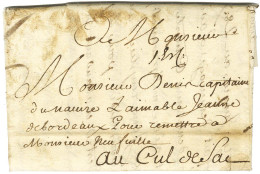 A Monsieur
Monsieur Denis Capitaine
du navire L'aimable Jeanne
de bordeaux Pour remettre a
Monsieur Neufville
au Cul de Sac